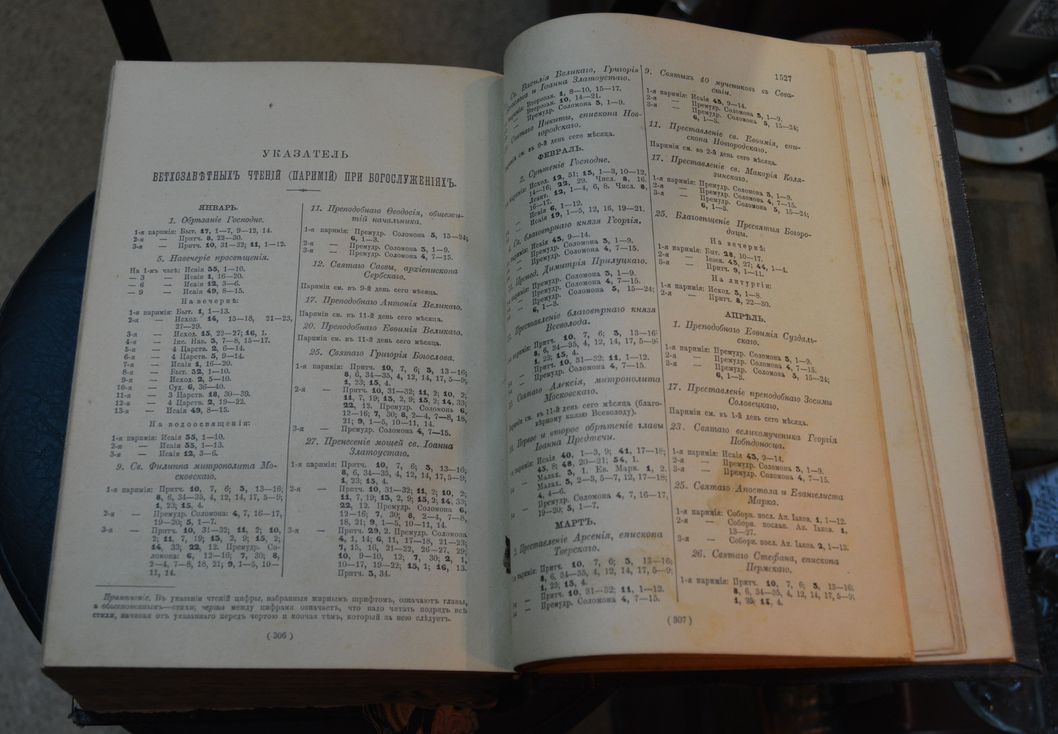 УКАЗАТЕЛЬ
ВЕТХОЗАВѢТНЫХЪ ЧТЕНІЙ (ПАРИМІЙ) ПРИ БОГОСЛУЖЕНІЯХЪ.
ЯНВАРЬ.
1. Обрѣзаніе Господне.
1-я паримія: Быт. 17, 1—7, 9—12, 14.
2-я — Притч. 8, 22—30.
3-я — Притч. 10, 31—32; 11, 1—12.
5. Навечеріе просвѣщенія.
На 1-мъ часѣ: Исаіи 35, 1—10.
— 3 — Исаіи 1, 16—20.
— 6 — Исаіи 12, 3—6.
— 9 — Исаіи 49, 8—15.
На вечернѣ:
1-я паримія: Быт. 1, 1—13.
2-я — Исход. 14, 15—18, 21—23,
27—29.
3-я — Исход. 15, 22—27; 16, 1.
4-я — Іис. Нав. 3, 7—8, 15—17.
5-я — 4 Царств. 2, 6—14.
6-я — 4 Царств. 5, 9—14.
7-я — Исаіи 1, 16—20.
8-я — Быт. 32, 1—10.
9-я — Исход. 2, 5—10.
10-я — Суд. 6, 36—40.
11-я — 3 Царств. 18, 30—39.
12-я — 4 Царств. 2, 19—22.
13-я — Исаіи 49, 8—15.
На водоосвященіи:
1-я паримія: Исаіи 35, 1—10.
2-я — Исаіи 55, 1—13.
3-я — Исаіи 12, 3—6.
9. Св. Филиппа митрополита Мо-
сковскаго.
1-я паримія: Притч. 10, 7, 6; 3, 13—16;
8, 6, 34—35, 4, 12, 14, 17, 5—9;
1, 23; 15, 4.
2-я — Премудр. Соломона: 4, 7, 16—17,
19—20; 5, 1—7.
3-я — Притч. 10, 31—32; 11, 2; 10,
2; 11, 7, 19; 13, 2, 9; 15, 2;
14, 33; 22, 12. Премудр. Со-
ломона: 6, 12—16; 7, 30; 8,
2—4, 7—8, 18, 21; 9, 1—5, 10—
11, 14.
11. Преподобнаго Ѳеодосія, общежи-
тій начальника.
1-я паримія: Премудр. Соломона 5, 15—24;
6, 1—3.
2-я — Премудр. Соломона 3, 1—9.
3-я — Премудр. Соломона 4, 7—15.
12. Святаго Саввы, архіепископа
Сербскаго.
Париміи см. въ 9-й день сего мѣсяца.
17. Преподобнаго Антонія Великаго.
Париміи см. въ 11-й день сего мѣсяца.
20. Преподобнаго Евѳимія Великаго.
Париміи см. въ 11-й день сего мѣсяца.
25. Святаго Григорія Богослова.
1-я паримія: Притч. 10, 7, 6; 3, 13—16;
8, 6, 34—35, 4, 12, 14, 17, 5—9;
1, 23; 15, 4.
2-я — Притч. 10, 31—32; 11, 2; 10, 2;
11, 7, 19; 13, 2, 9; 15, 2; 14, 33;
22, 12. Премудр. Соломона 6,
12—16; 7, 30; 8, 2—4, 7—8, 18,
21; 9, 1—5, 10—11, 14.
3-я — Премудр. Соломона 4, 7—15.
27. Пренесеніе мощей св. Іоанна
Златоустаго.
1-я паримія: Притч. 10, 7, 6; 3, 13—16;
8, 6, 34—35, 4, 12, 14, 17, 5—9;
1, 23; 15, 4.
2-я — Притч. 10, 31—32; 11, 2; 10, 2;
11, 7, 19; 13, 2, 9; 15, 2; 14, 33;
22, 12. Премудр. Соломона 6,
12—16; 7, 30; 8, 2—4, 7—8,
18, 21; 9, 1—5, 10—11, 14.
3-я — Притч. 29, 2. Премудр. Соломона
4, 1, 14; 6, 11, 17—18, 21—23;
7, 15, 16, 21—22, 26—27, 29;
10, 9—10, 12; 7, 30; 2, 1,
10—17, 19—22; 15, 1; 16, 13.
Притч. 3, 34.
Примѣчаніе. Въ указаніи чтеній цифры, набранныя жирнымъ шрифтомъ, означаютъ главы,
а обыкновеннымъ—стихи; черта между цифрами означаетъ, что надо читать подрядъ всѣ
стихи, начиная отъ указаннаго передъ чертою и кончая тѣмъ, который за нею слѣдуетъ.
(306)
1527
Св. Василія Великаго, Григорія
и Іоанна Златоустаго.
Второзак. 1, 8—10, 15—17.
Второзак. 10, 14—21.
Премудр. Соломона 3, 1—9.
Святаго Никиты, епископа Нов-
городскаго.
см. въ 9-й день сего мѣсяца.
ФЕВРАЛЬ.
2. Срѣтеніе Господне.
Исход. 12, 51; 13, 1—3, 10—12,
14—16; 22, 29. Числ. 8, 16.
Левит. 12, 1—4, 6, 8. Числ. 8,
16—17.
Исаіи 6, 1—12.
Исаіи 19, 1—5, 12, 16, 19—21.
Св. благовѣрнаго князя Георгія.
Исаіи 43, 9—14.
Премудр. Соломона 3, 1—9.
Препод. Димитрія Прилуцкаго.
Премудр. Соломона 3, 1—9.
Премудр. Соломона 4, 7—15.
Премудр. Соломона 5, 15—24;
6, 1—3.
Преставленіе благовѣрнаго князя
Всеволода.
Притч. 10, 7, 6; 3, 13—16;
8, 6, 34—35, 4, 12, 14, 17, 5—9;
1, 23; 15, 4.
Притч. 10, 31—32; 11, 1—12.
Премудр. Соломона 4, 7—15.
Святаго Алексія, митрополита
Московскаго.
см. въ 11-й день сего мѣсяца (благо-
вѣрному князю Всеволоду).
Первое и второе обрѣтеніе главы
Іоанна Предтечи.
Исаіи 40, 1—3, 9; 41, 17—18;
45, 8; 48, 20—21; 54, 1.
Малах. 3, 1. Ев. Марк. 1, 2.
Малах. 3, 2—3, 5—7, 12, 17—18;
4, 4—6.
Премудр. Соломона 4, 7, 16—17,
19—20; 5, 1—7.
МАРТЪ.
2. Преставленіе Арсенія, епископа
Тверскаго.
Притч. 10, 7, 6; 3, 13—16;
8, 6, 34—35, 4, 12, 14, 17, 5—9;
1, 23; 15, 4.
Притч. 10, 31—32; 11, 1—12.
Премудр. Соломона 4, 7—15.
9. Святыхъ 40 мучениковъ въ Сева-
стіи.
1-я паримія: Исаіи 43, 9—14.
2-я — Премудр. Соломона 3, 1—9.
3-я — Премудр. Соломона 5, 15—24;
6, 1—3.
11. Преставленіе св. Евѳимія, епи-
скопа Новгородскаго.
Париміи см. въ 2-й день сего мѣсяца.
17. Преставленіе св. Макарія Коля-
зинскаго.
1-я паримія: Премудр. Соломона 3, 1—9.
2-я — Премудр. Соломона 4, 7—15.
3-я — Премудр. Соломона 5, 15—24;
6, 1—3.
25. Благовѣщеніе Пресвятыя Богоро-
дицы.
На вечернѣ:
1-я паримія: Быт. 28, 10—17.
2-я — Іезек. 43, 27; 44, 1—4.
3-я — Притч. 9, 1—11.
На литургіи:
1-я паримія: Исход. 3, 1—8.
2-я — Притч. 8, 22—30.
АПРѢЛЬ.
1. Преподобнаго Евѳимія Суздаль-
скаго.
1-я паримія: Премудр. Соломона 3, 1—9.
2-я — Премудр. Соломона 4, 7—15.
3-я — Премудр. Соломона 5, 15—24;
6, 1—3.
17. Преставленіе преподобнаго Зосимы
Соловецкаго.
Париміи см. въ 1-й день сего мѣсяца.
23. Святаго великомученика Георгія
Побѣдоносца.
1-я паримія: Исаіи 43, 9—14.
2-я — Премудр. Соломона 3, 1—9.
3-я — Премудр. Соломона 4, 7—15.
25. Святаго Апостола и Евангелиста
Марка.
1-я паримія: Соборн. посл. Ап. Іаков. 1, 1—12.
2-я — Соборн. послан. Ап. Іаков. 1,
13—27.
3-я — Соборн. посл. Ап. Іаков. 2, 1—13.
26. Святаго Стефана, епископа
Пермскаго.
1-я паримія: Притч. 10, 7, 6; 3, 13—16;
8, 6, 34—35, 4, 12, 14, 17, 5—9;
1, 23; 15, 4.
(307)